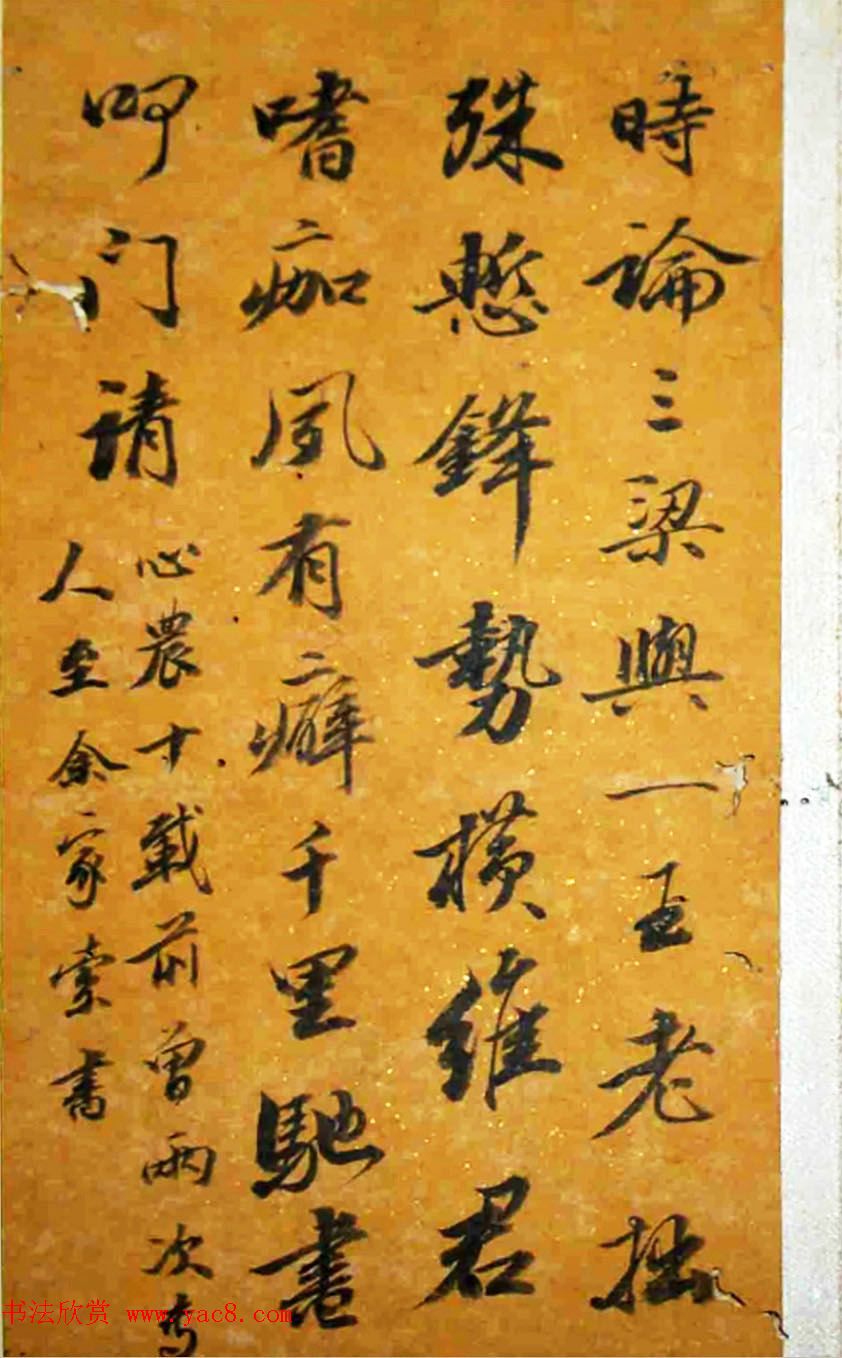 時論三梁與一王老拙
殊慙鋒勢橫維君
嗜痂夙有癖千里馳書
叩門請
心農十載前曾兩次專
人至余家索書
书法欣赏 www.yac8.com